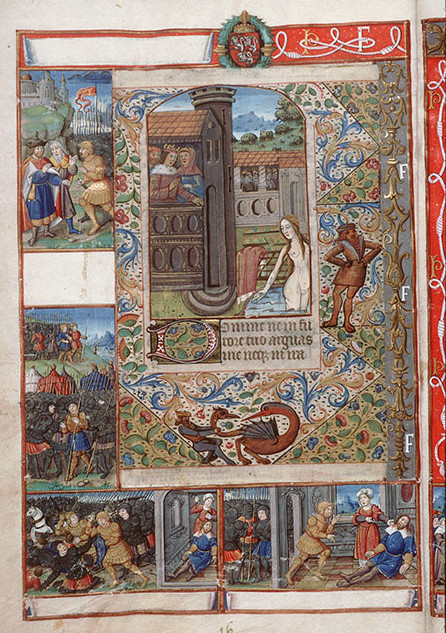 F
F
F
Domine ne in fu
rore tuo arguas
me neqz in ira
F